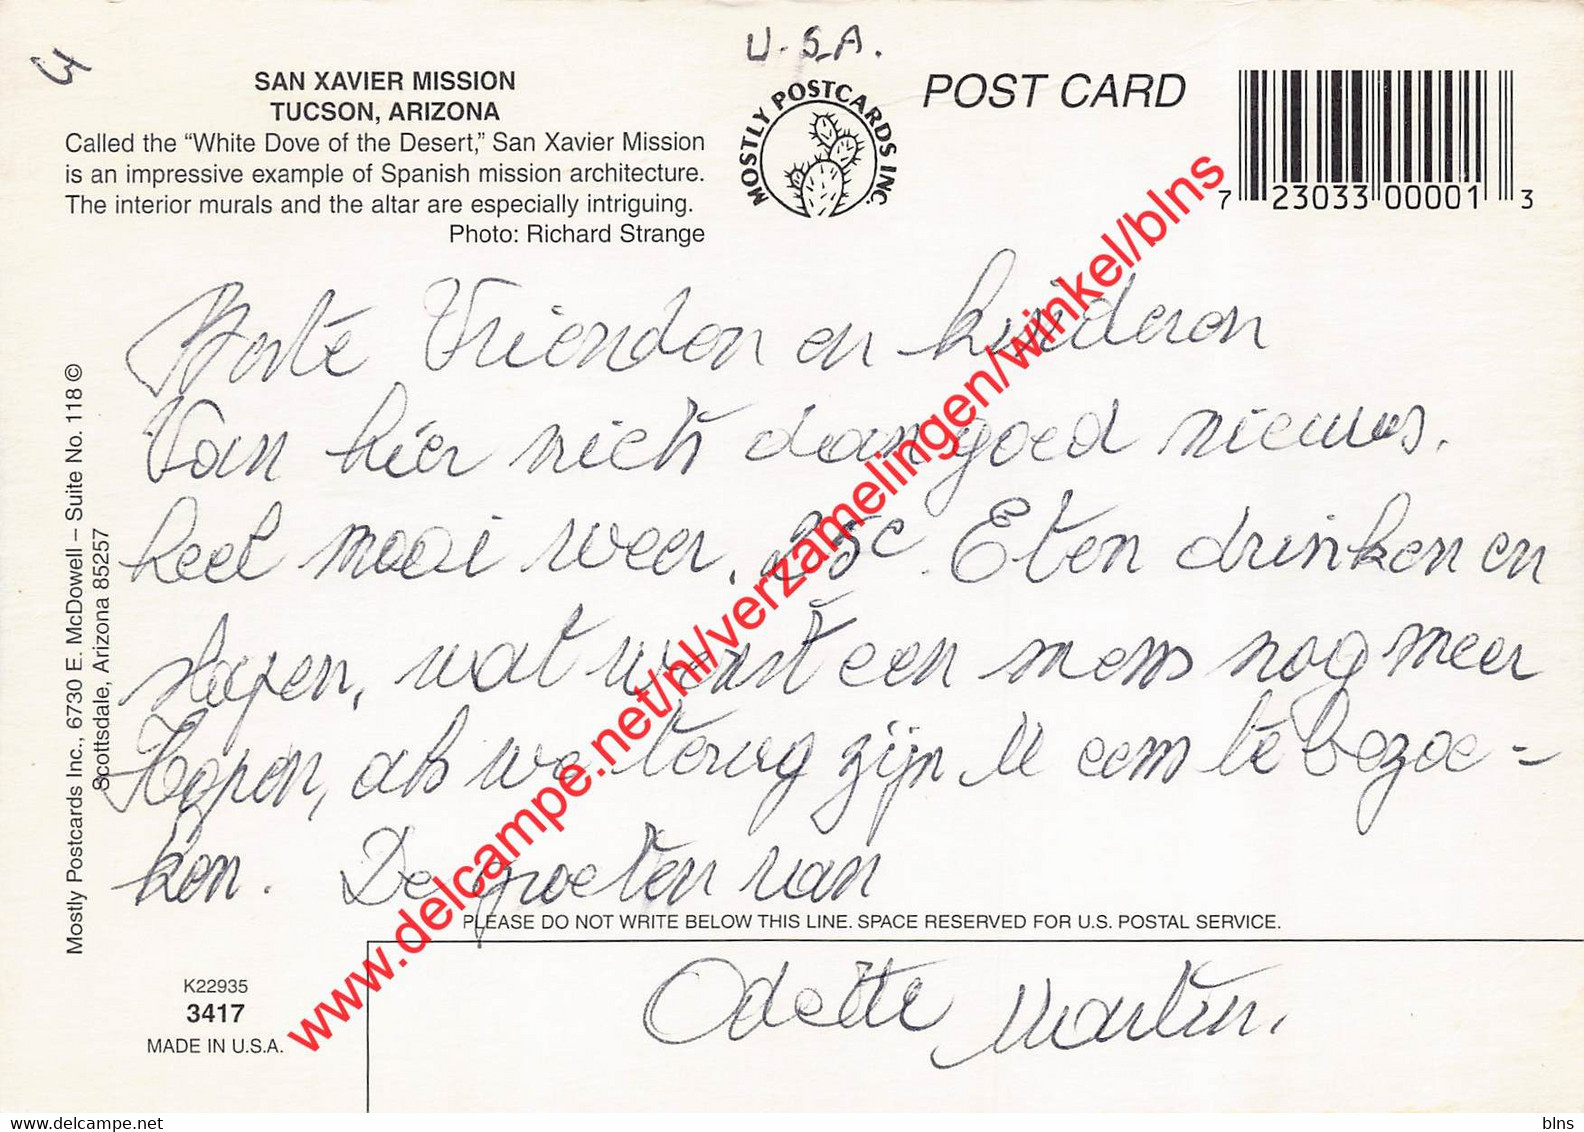 U.S.A.
5
SAN XAVIER MISSION
TUCSON, ARIZONA
Called the “White Dove of the Desert,” San Xavier Mission
is an impressive example of Spanish mission architecture.
The interior murals and the altar are especially intriguing.
Photo: Richard Strange
MOSTLY POSTCARDS INC.
POST CARD
7 23033 00001 3
Beste Vrienden en kinderen
Van hier niets dan goed nieuws.
heel mooi weer, 25c. Eten drinken en
slapen, wat wenst een mens nog meer
Hopen, als we terug zijn U eens te bezoe-
ken. De groeten van
PLEASE DO NOT WRITE BELOW THIS LINE. SPACE RESERVED FOR U.S. POSTAL SERVICE.
Odette Martin.
Mostly Postcards Inc., 6730 E. McDowell – Suite No. 118 ©
Scottsdale, Arizona 85257
K22935
3417
MADE IN U.S.A.
www.delcampe.net/nl/verzamelingen/winkel/blns
delcampe.net
blns